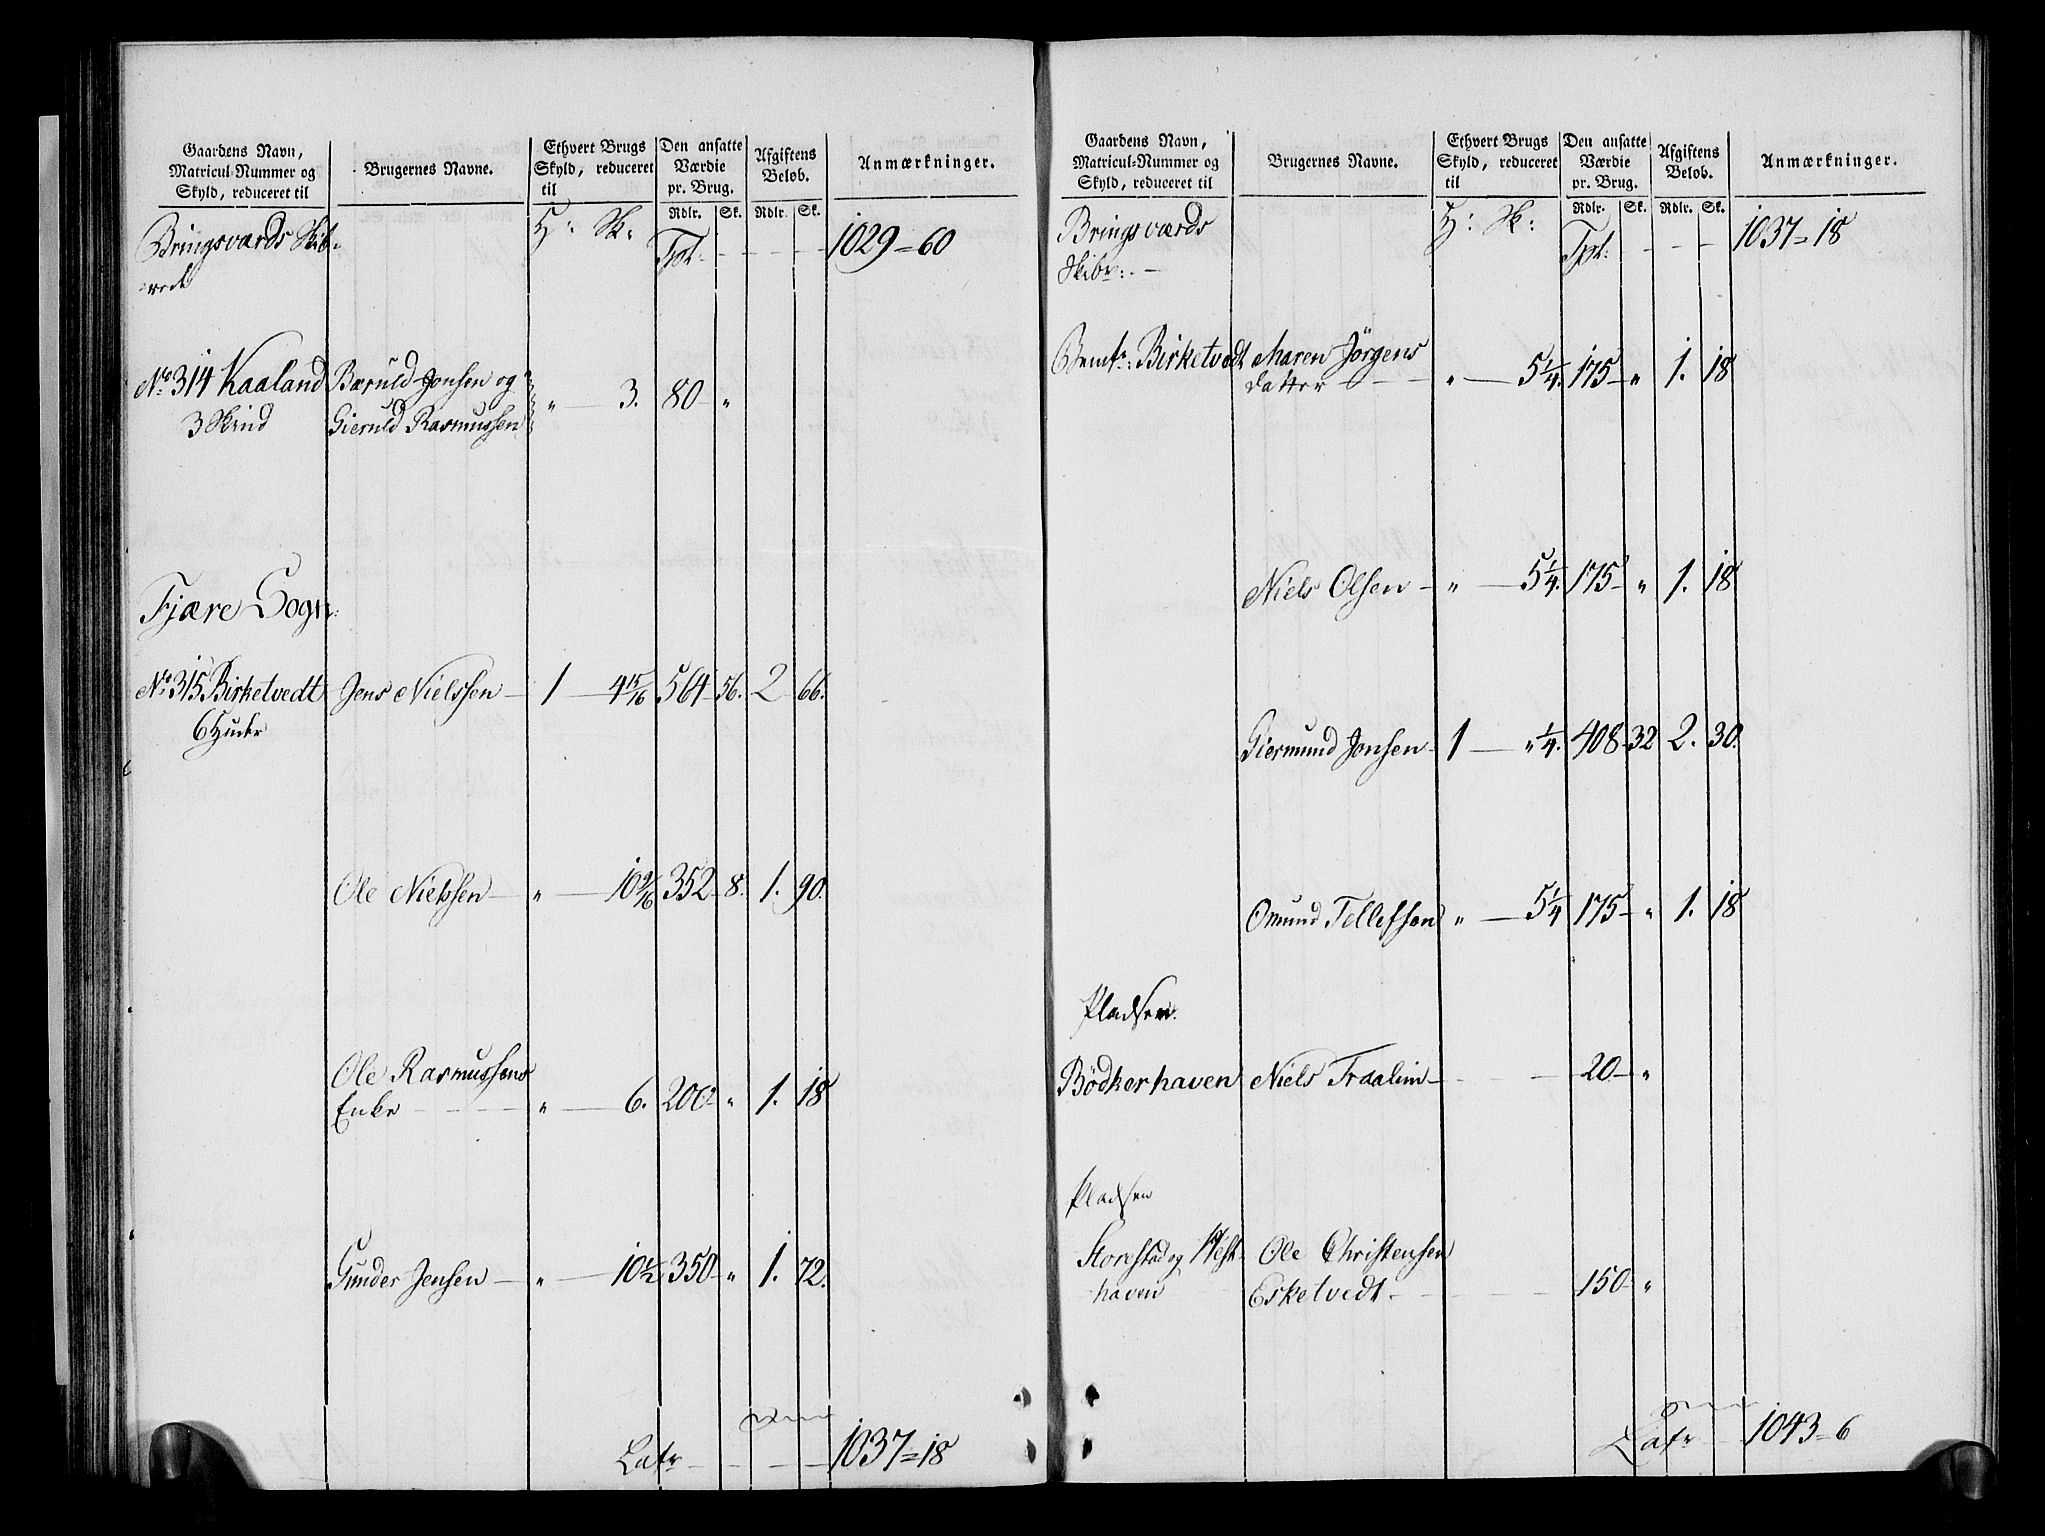 Gaardens Navn,
Matricul-Nummer og
Skyld, reduceret til
Brugernes Navne.
Ethvert Brugs
Skyld, reduceret
til
Den ansatte
Værdie
pr. Brug.
Afgiftens
Beløb.
Anmærkninger.
Rdlr. Sk. Rdlr. Sk.
Bringsværds Skib-
rede
H: Sk: Tpt: - - - - 1029 = 60
No 314 Kaaland Baruld Jonsen og
3 Skind Gieruld Rasmussen " — 3. 80 "
Fjære Sogn:
No 315 Birketvedt Jens Nielssen — 1 — 4 15/16 564 56. 2 66.
6 Huder
Ole Nielssen — " — 10 9/16 352 8. 1. 90.
Ole Rasmussens
Enke - - - " — 6. 200 " 1. 18
Gunder Jensen — " — 10 1/2 350 " 1. 72.
Latr - - - - 1037 = 18
Gaardens Navn,
Matricul-Nummer og
Skyld, reduceret til
Brugernes Navne.
Ethvert Brugs
Skyld, reduceret
til
Den ansatte
Værdie
pr. Brug.
Afgiftens
Beløb.
Anmærkninger.
Rdlr. Sk. Rdlr. Sk.
Bringsværds
Skibr: -
H: Sk: Tpt: - - - 1037 = 18
Bemte: Birketvedt Maren Jörgens
datter - - - " — 5 1/4. 175 — " 1. 18
Niels Olsen — " — 5 1/4. 175 — " 1. 18
Giermund Jonsen — 1 — " 1/4. 408 32 2. 30.
Omund Tellefsen " — 5 1/4 175 — " 1. 18
Pladsen.
Bödkerhaven Niels Traalim - - - - 20 — "
Pladsen
Storestad og West- Ole Christensen
haven Esketvedt. - - - - 150 — "
Latr - 1043 = 6